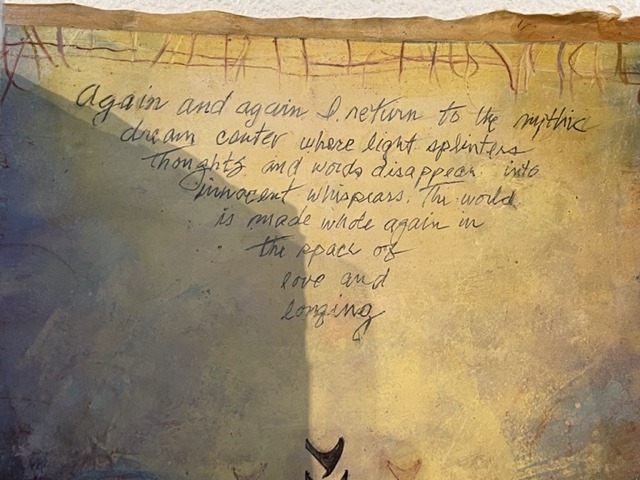 Again and again I return to the mythic
dream center where light splinters
thoughts and words disappear into
innocent whispears. The world
is made whole again in
the space of
love and
longing